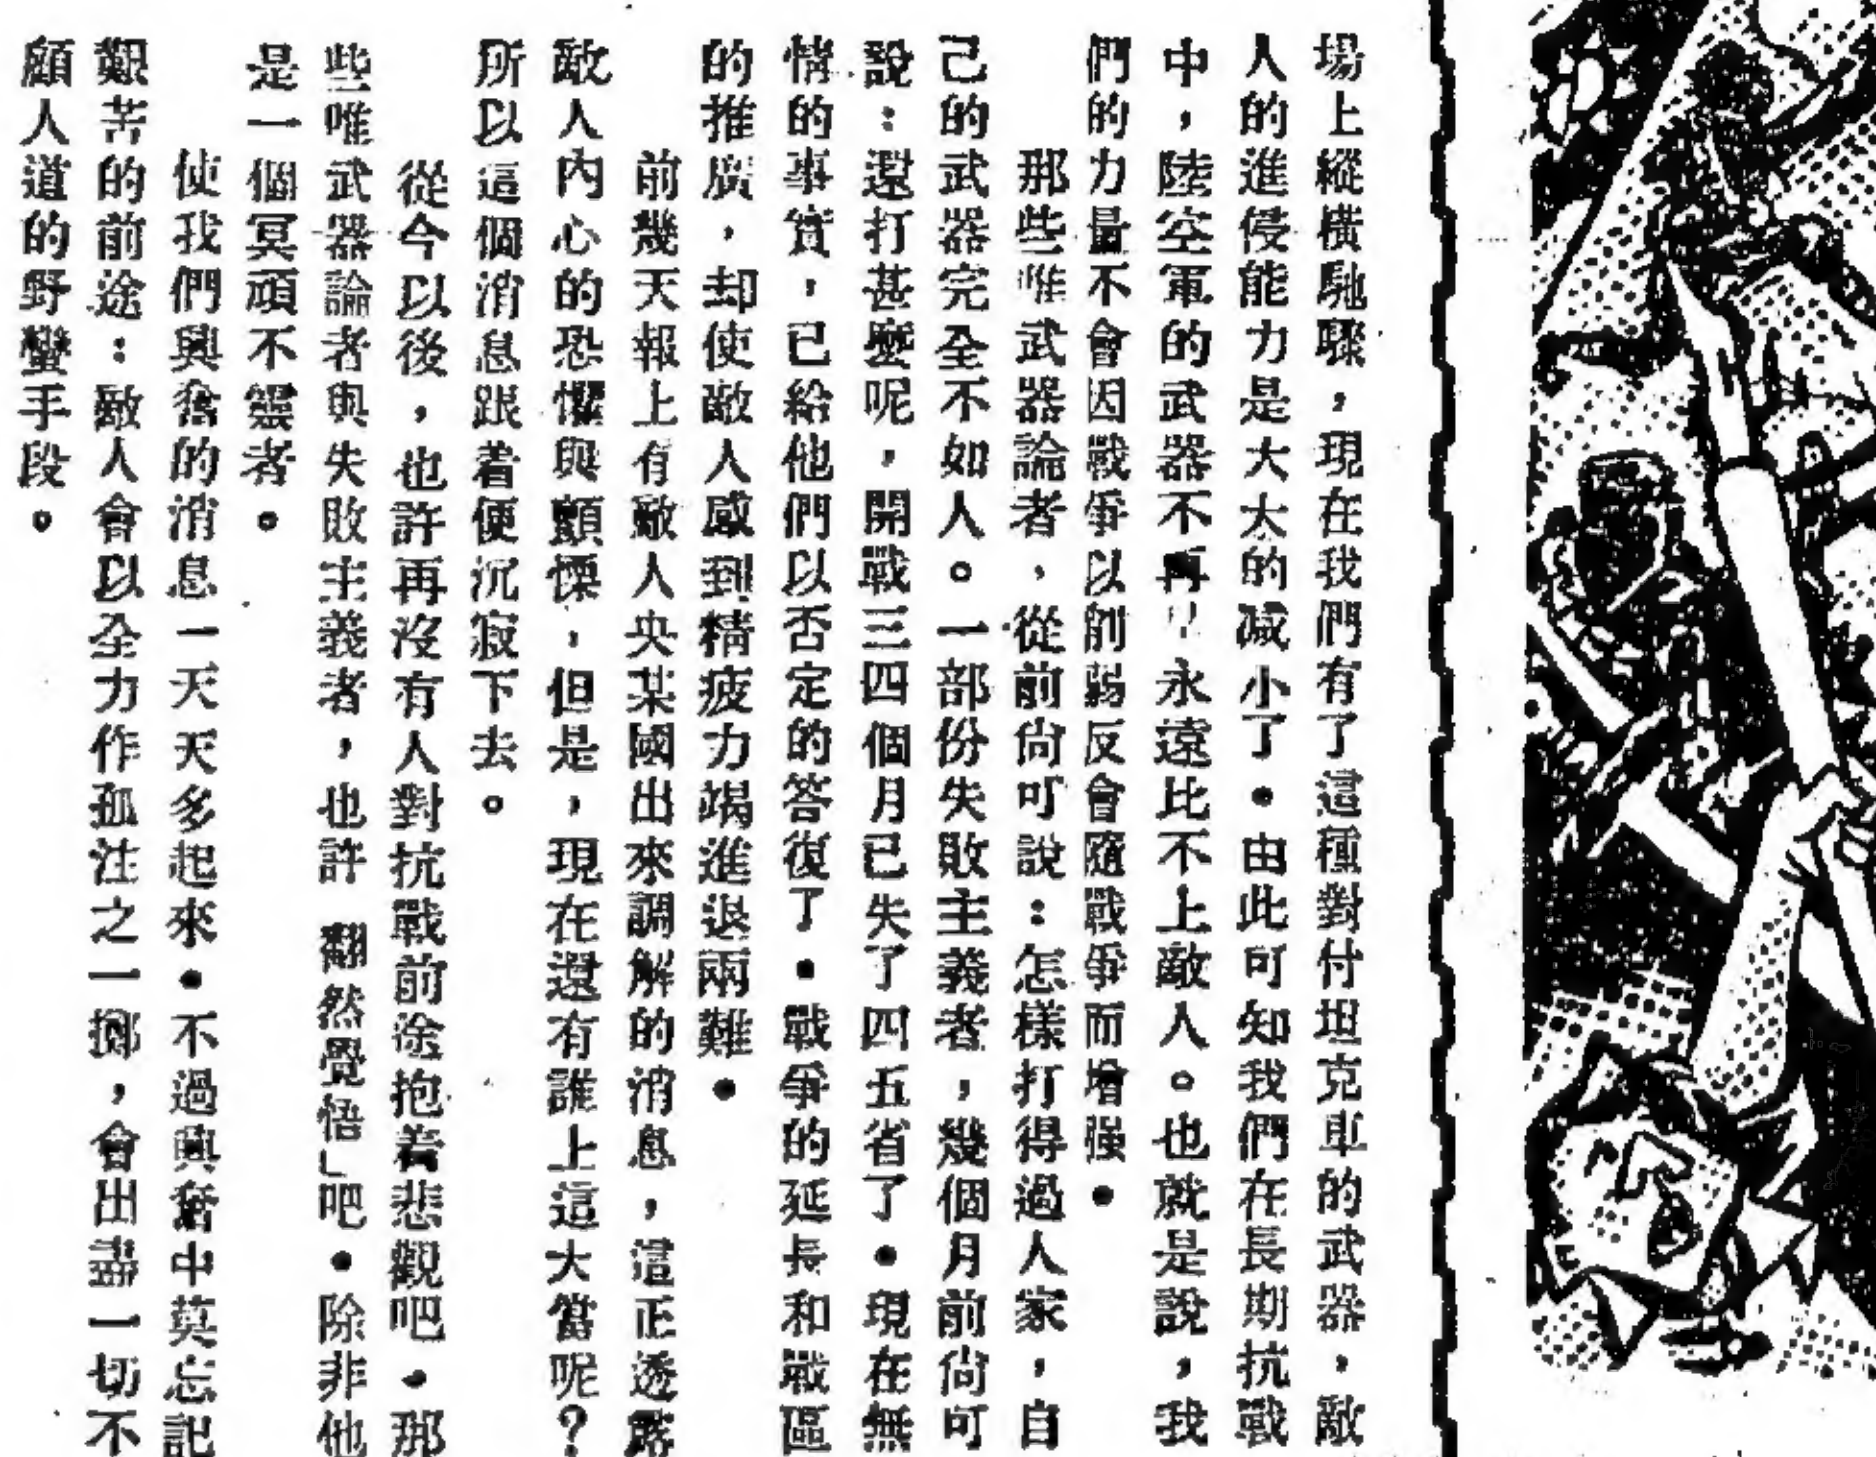 場上縱橫馳驟，現在我們有了這種對付坦克車的武器，敵
人的進侵能力是大太的减小了．由此可知我們在長期抗戰
中，陸空軍的武器不再永遠比不上敵人。也就是說，我
們的力量不會因戰爭以削弱反會隨戰爭而增强．
那些唯武器論者、從前尙可說：怎樣打得過人家，自
己的武器完全不如人。一部份失敗主義者，幾個月前尙可
說：還打甚麼呢，開戰三四個月已失了四五省了．現在無
情的事實，已給他們以否定的答復了．戰爭的延長和戰區
的推廣，却使敵人感到精疲力竭進退兩難．
前幾天報上有敵人央某國出來調解的消息，這正透露
敵人內心的恐懼與顫慄，但是，現在還有誰上這大當呢？
所以這個消息跟着便沉寂下去。
從今以後，也許再沒有人對抗戰前途抱着悲觀吧．那
些唯武器論者與失敗主義者，也許翻然覺悟」吧．除非他
是一個冥頑不靈者。
使我們興奮的消息一天天多起來．不過興奮中莫忘記
艱苦的前途：敵人會以全力作孤注之一擲，會出盡一切不
顧人道的野蠻手段。